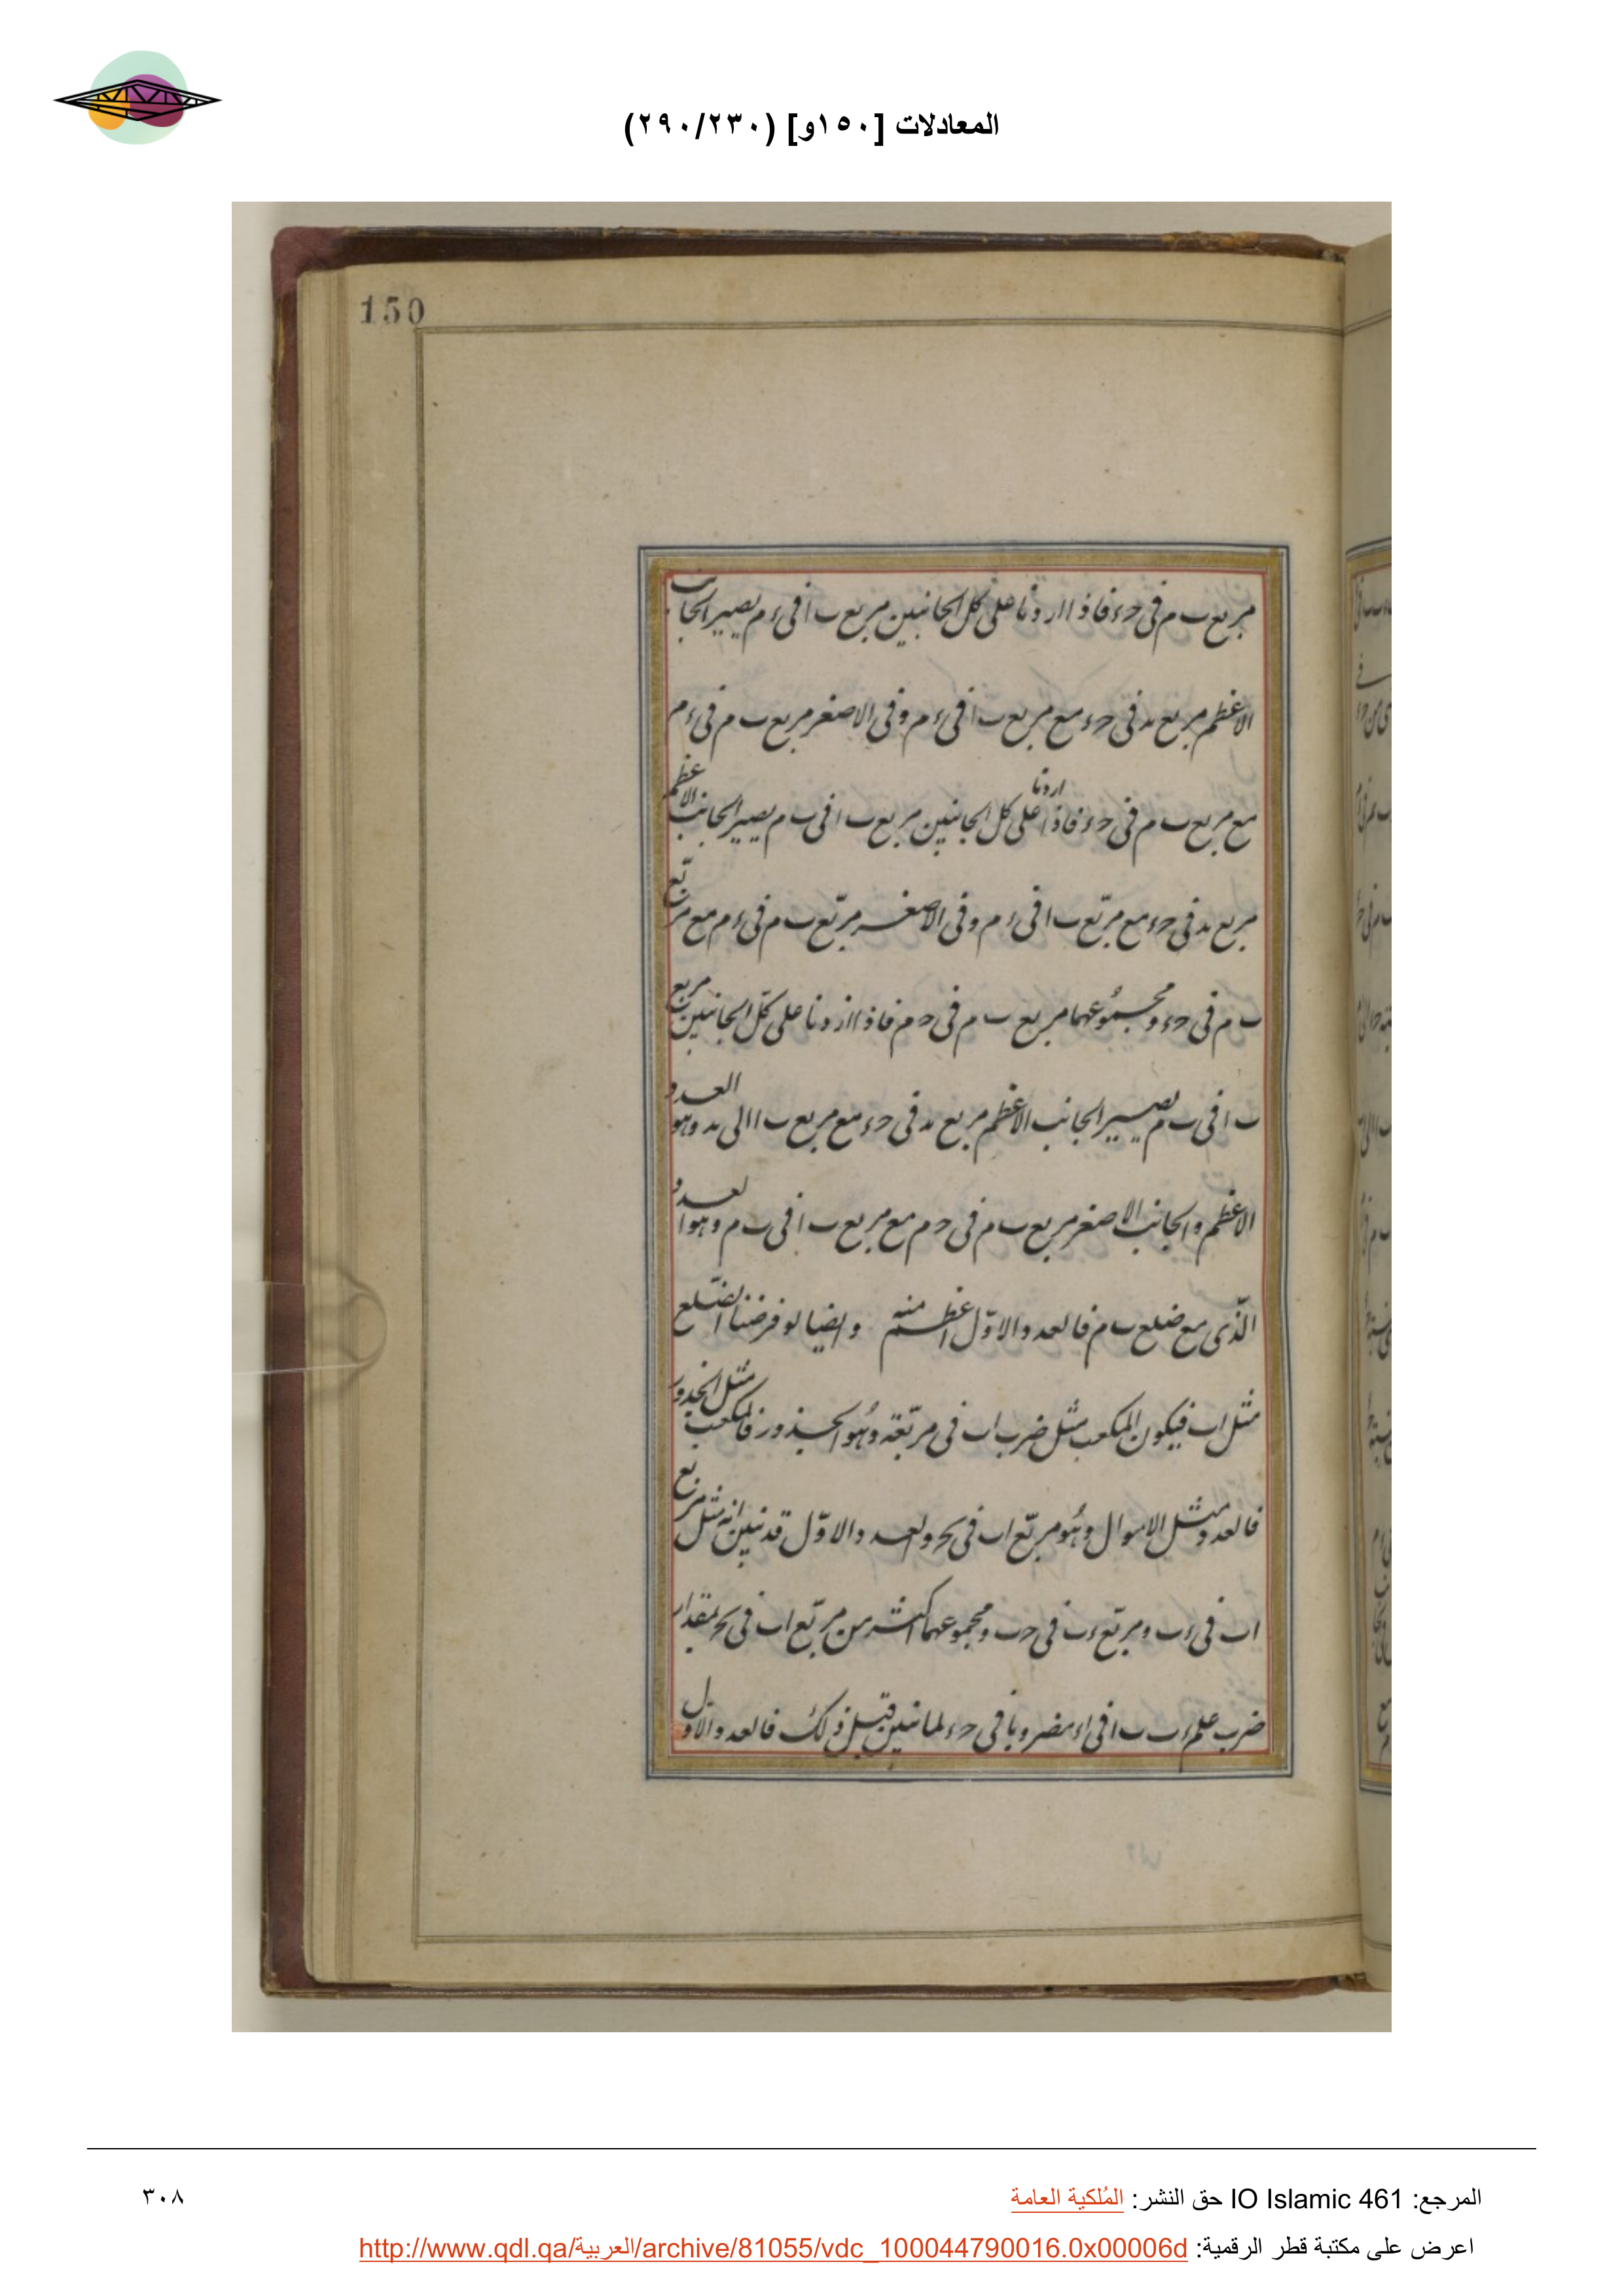 المعادلات [١٥٠و] (٢٩٠/٢٣٠)
150
مربع ب م فى حء فاذا ازدنا على كل الجانبين مربع ب ا فى ء م يصير الجانب
الاعظم مربع ىد فى حء مع مربع ب ا فى ء م وفى الاصغر مربع ب م فى ء م
مع مربع ب م فى حء فاذا ازدنا على كل الجانبين مربع ب ا فى ب م يصير الجانب الاعظم
مربع ىد فى حء مع مربّع ب ا فى ء م وفى الاصغر مربّع ب م فى ء م مع مربّع
ب م فى حء ومجموعهما مربع ب م فى ح م فاذا ازدنا على كلّ الجانبين مربع
ب ا فى ب م يصير الجانب الاعظم مربع ىد فى حء مع مربع ب ا الى ىد وهو العدد
الاعظم والجانب الاصغر مربع ب م فى ح م مع مربع ب ا فى ب م وهو العدد
الّذى مع ضلع ب م فالعدد الاوّل اعظم منه وايضا لو فرضنا الضّلع
مثل اب فيكون المكعب مثل ضرب اب فى مربّعه وهو الجذور فالمكعب مثل الجذور
فالعدد مثل الاموال وهو مربّع اب فى ٮح والعدد الاوّل قد تبين انه مثل مربّع
اب فى ءب ومربّع ءب فى حب ومجموعهما اكثر من مربّع اب فى ٮح بمقدار
ضرب علم ءب ب ا فى اء مضروبا فى حء لما تبين قبل ذلك فالعدد الاول
المرجع: IO Islamic 461 حق النشر: المُلكية العامة
٣٠٨
اعرض على مكتبة قطر الرقمية: http://www.qdl.qa/العربية/archive/81055/vdc_100044790016.0x00006d